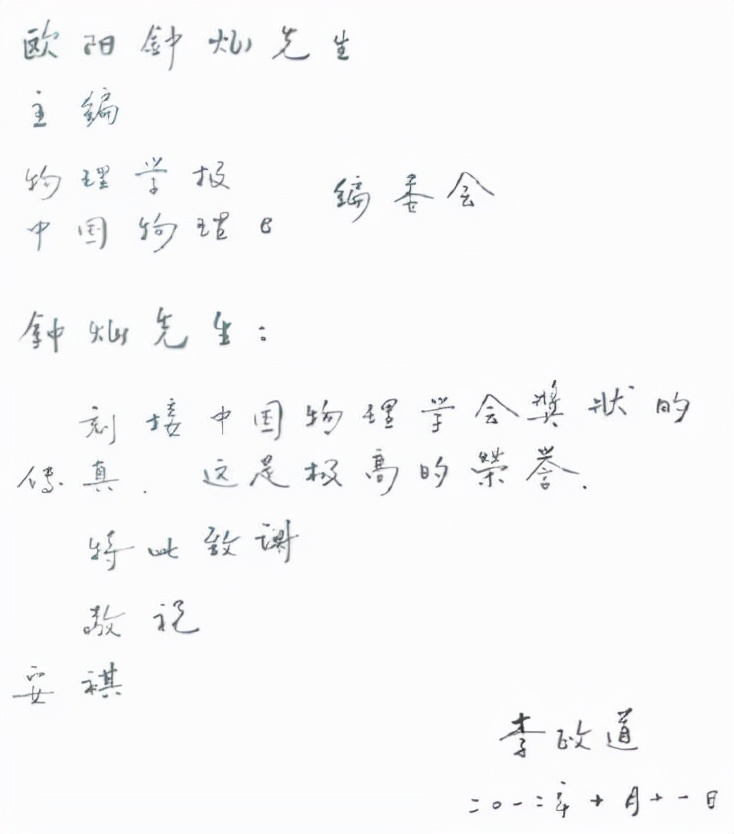 欧阳钟灿先生
主编
物理学报 编委会
中国物理B
钟灿先生:
刻接中国物理学会奬状的
传真. 这是极高的荣誉.
特此致谢
敬祝
安祺
李政道
二〇一二年十月十一日